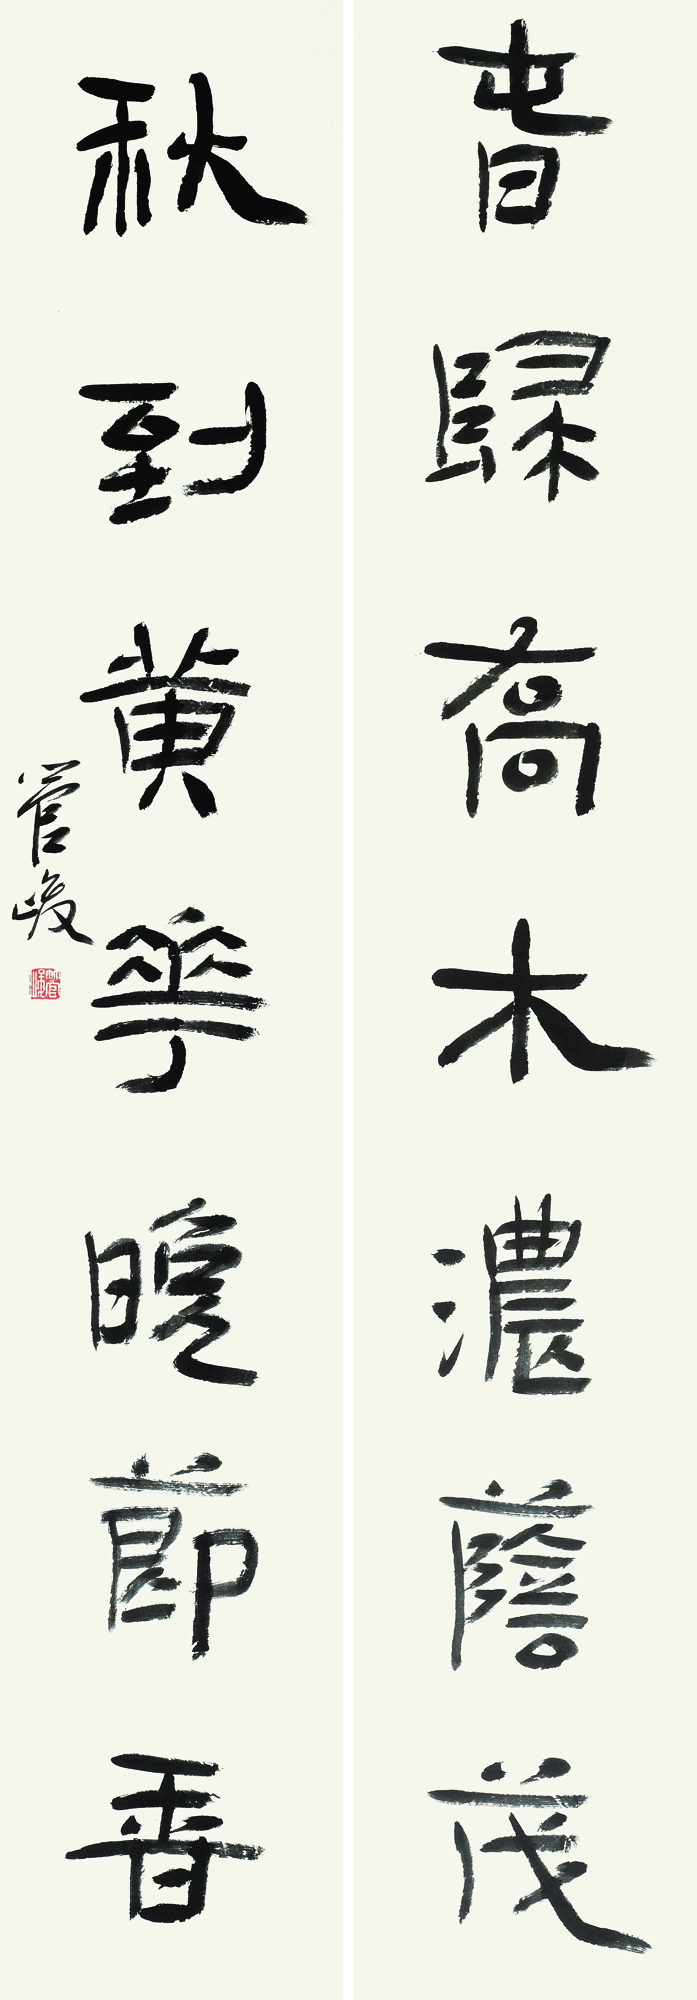 春歸喬木濃蔭茂
秋到黃華晚節香
管峻